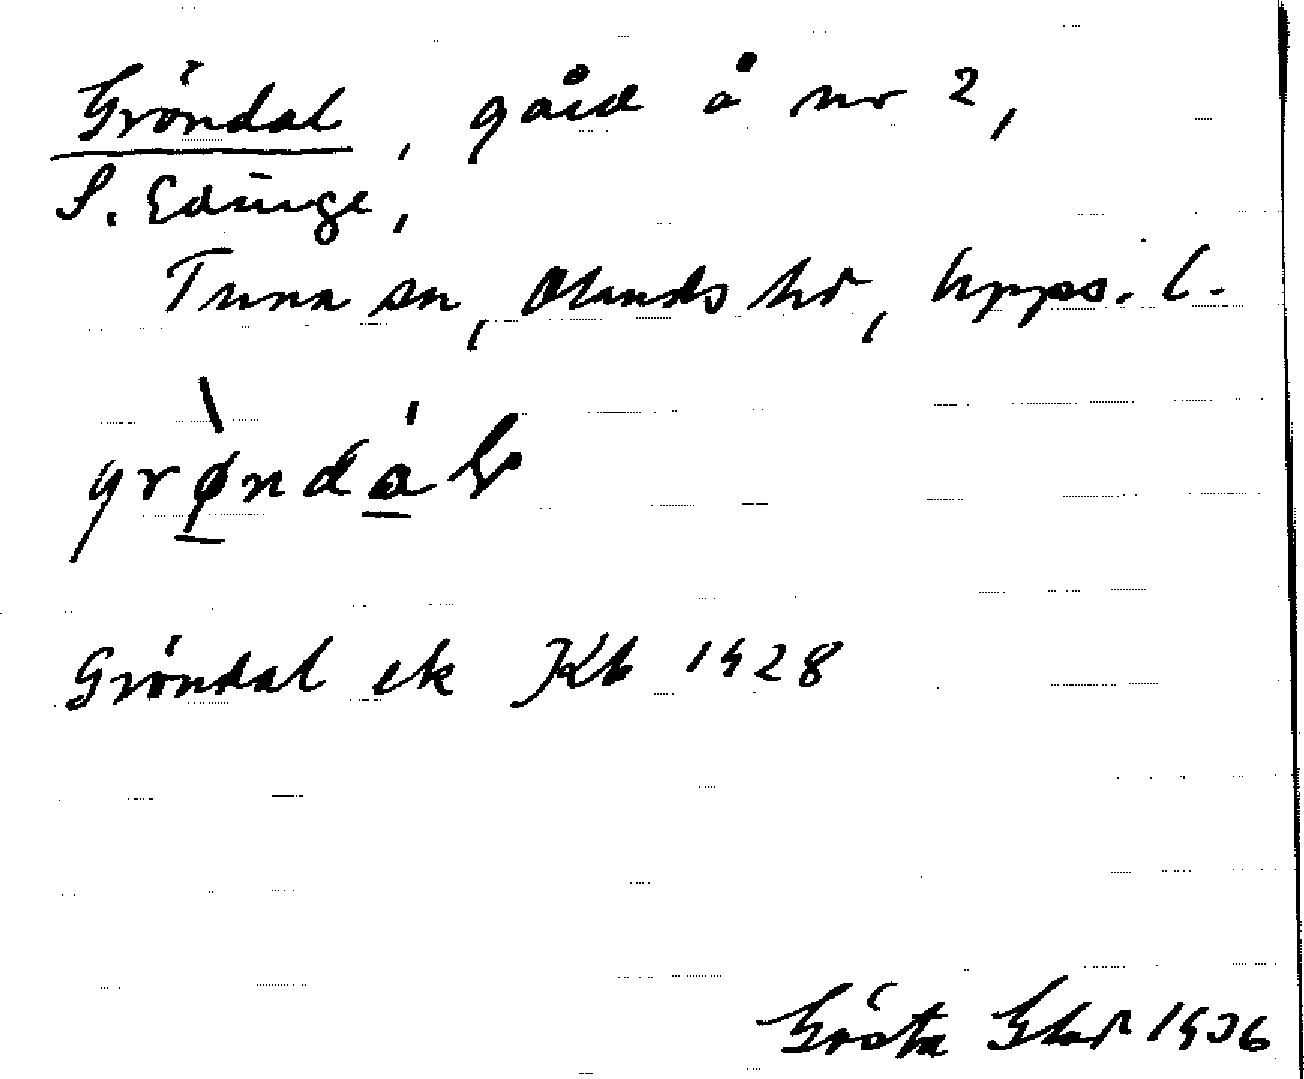 Gröndal, gård å nr 2,
S. Edinge,
Tuna sn, Olands hd, Upps. l.
grøndal
Gröndal ek Kb 1928
Gösta 1936